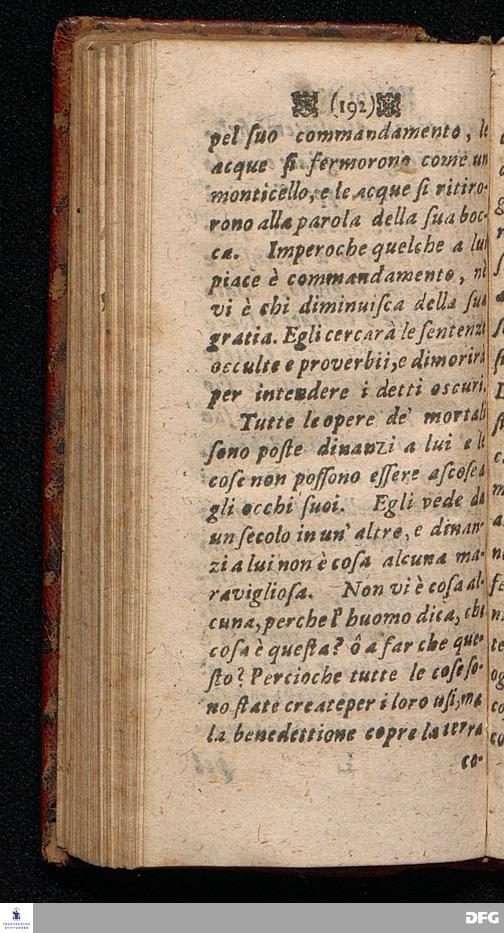 (192)
pel ſuo commandamento, le
acque ſi fermorono come un
monticello, e le acque ſi ritiro-
rono alla parola della ſua boc-
ca. Imperoche quelche a lui
piace è commandamento, nè
vi è chi diminuiſca della ſua
gratia. Egli cercarà le ſentenze
occulte e proverbii, e dimorirà
per intendere i detti oscuri.
Tutte le opere de' mortali
ſono poſte dinanzi a lui e le
coſe non poſſono eſſere aſcoſe a
gli occhi ſuoi. Egli vede da
un ſecolo in un' altro, e dinan-
zi a lui non è coſa alcuna ma-
raviglioſa. Non vi è coſa al-
cuna, perche l' huomo dica, che
coſa è queſta? ô a far che que-
ſto? Percioche tutte le coſe ſo-
no ſtate create per i loro uſi, ma
la benedettione copre la terra
co-
FRANCKESCHE
STIFTUNGEN
DFG